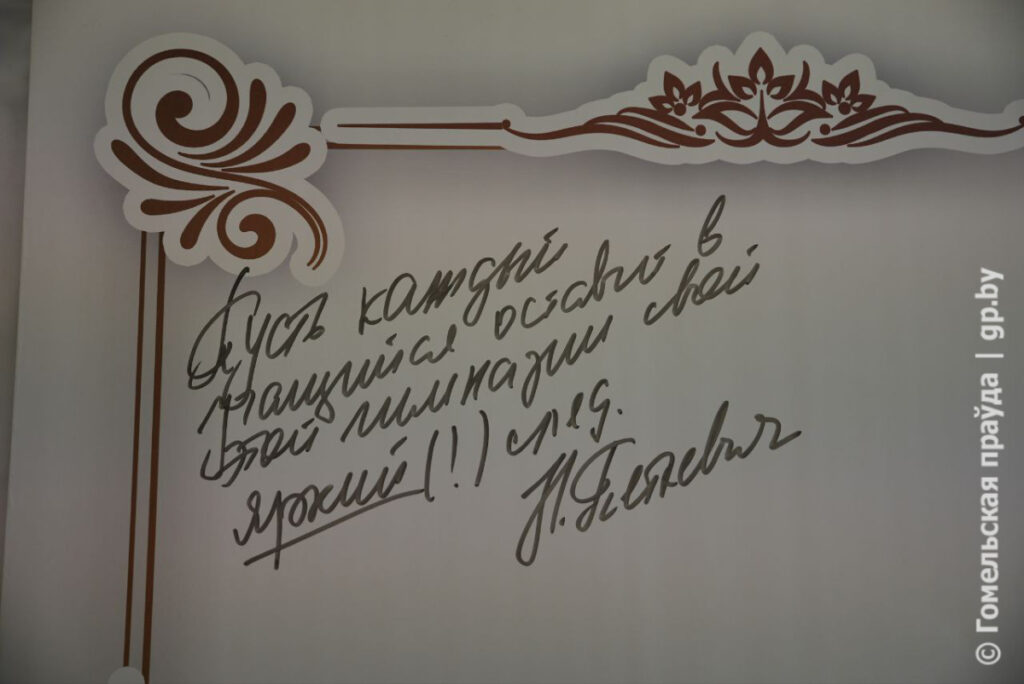 Пусть каждый
учащийся оставит в
этой гимназии свой
яркий(!) след.
Н. Петкевич
© Гомельская праўда | gp.by